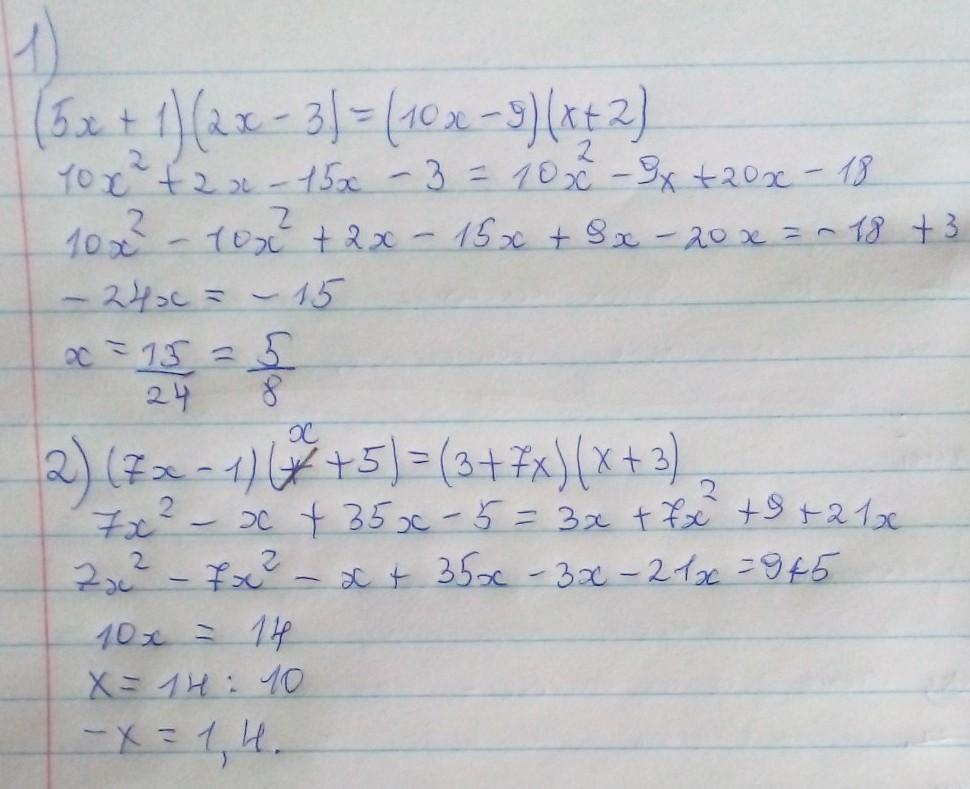 1)
(5x + 1)(2x - 3) = (10x - 9)(x + 2)
10x² + 2x - 15x - 3 = 10x² - 9x + 20x - 18
10x² - 10x² + 2x - 15x + 9x - 20x = - 18 + 3
- 24x = - 15
x = 15/24 = 5/8
2) (7x - 1)(x + 5) = (3 + 7x)(x + 3)
7x² - x + 35x - 5 = 3x + 7x² + 9 + 21x
7x² - 7x² - x + 35x - 3x - 21x = 9 + 5
10x = 14
x = 14 : 10
- x = 1,4.